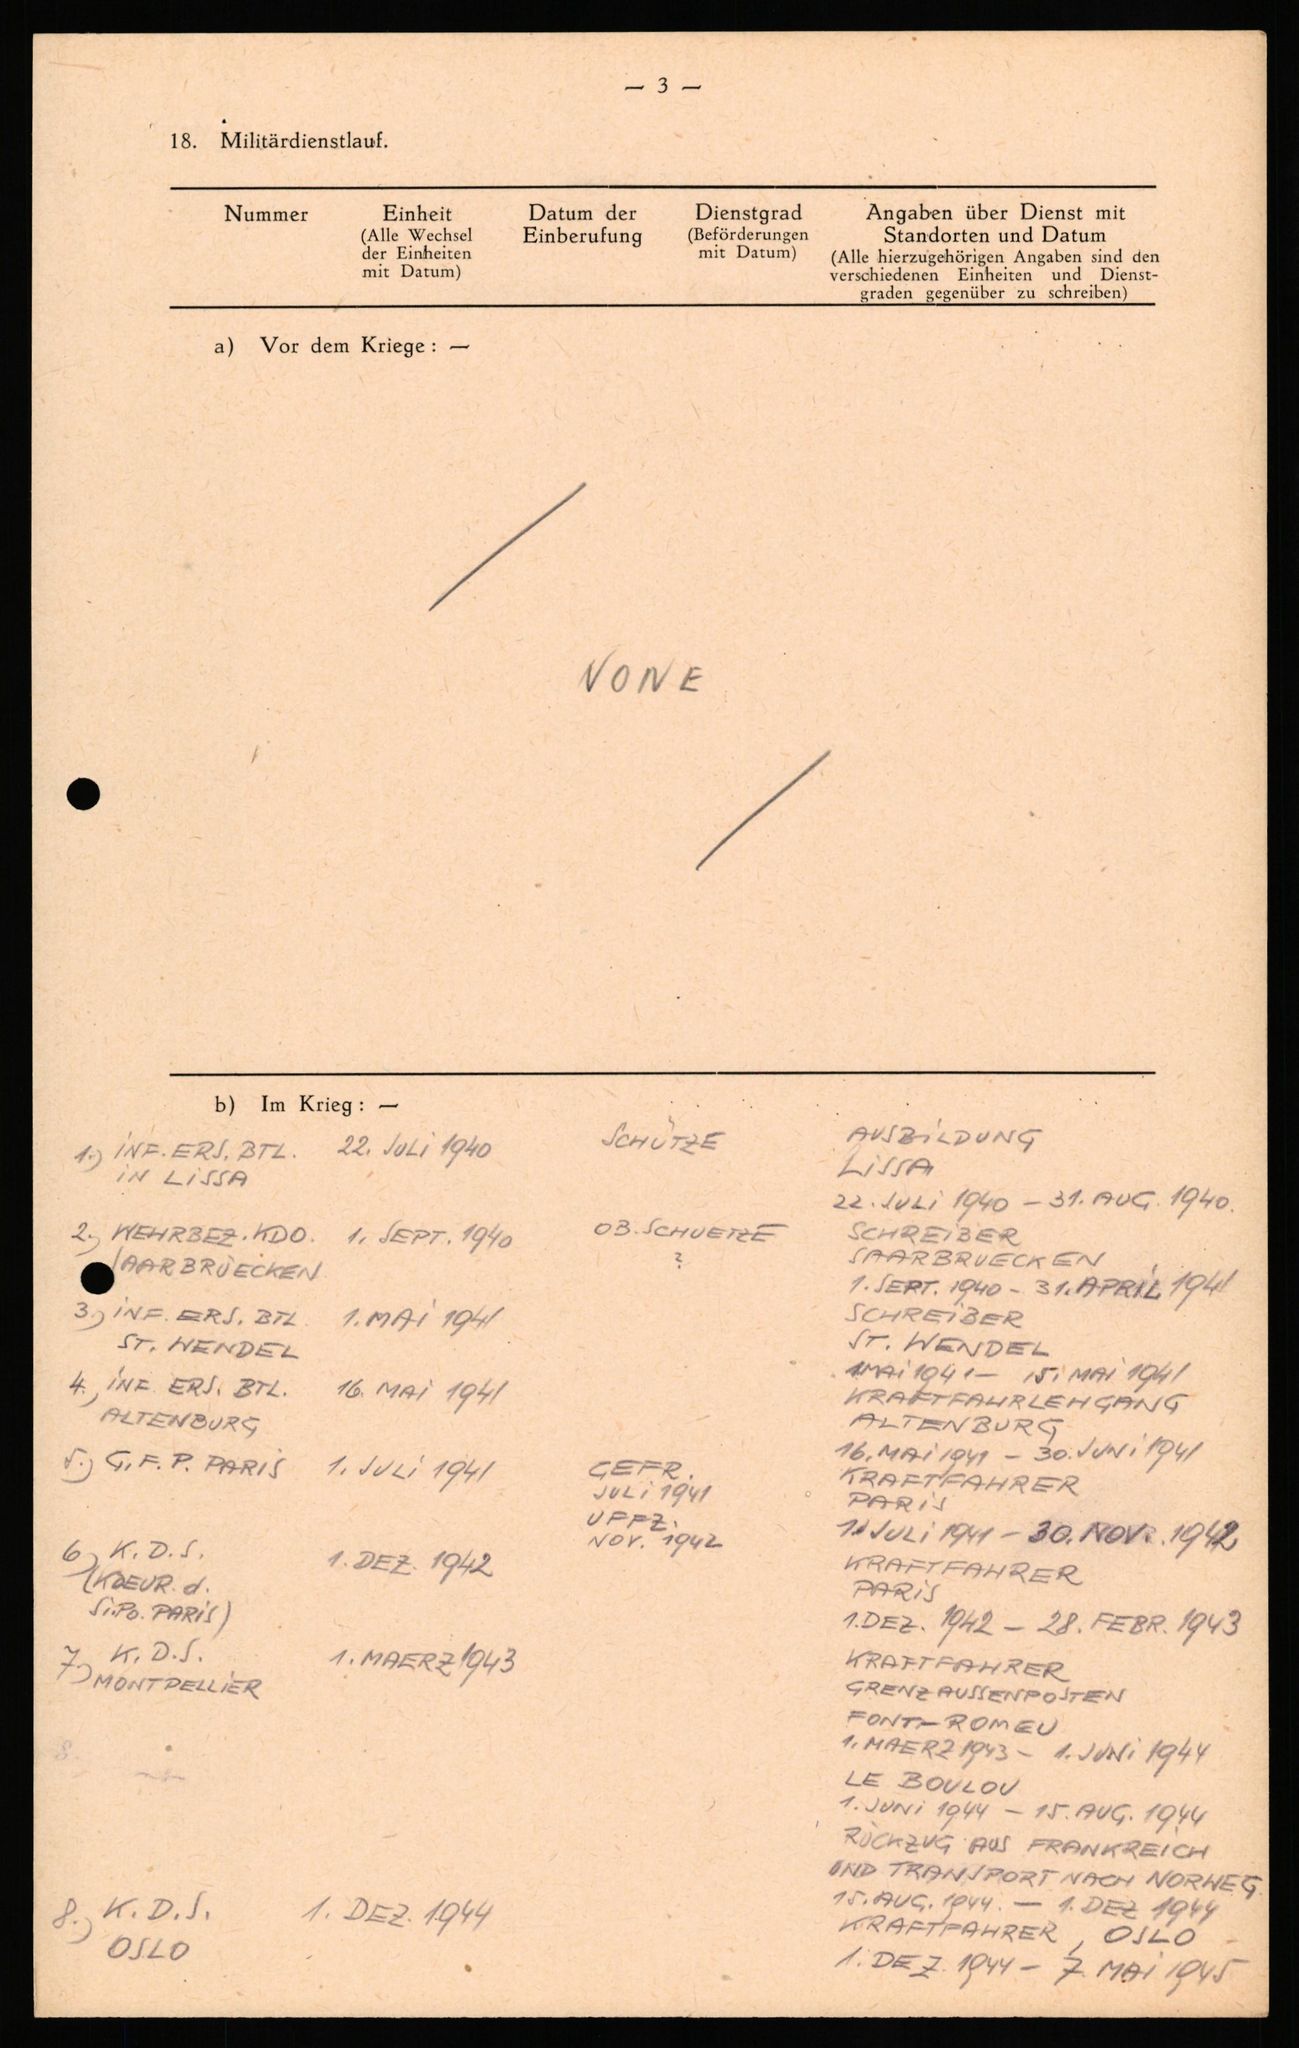 — 3 —
18. Militärdienstlauf.
Nummer
Einheit
(Alle Wechsel
der Einheiten
mit Datum)
Datum der
Einberufung
Dienstgrad
(Beförderungen
mit Datum)
Angaben über Dienst mit
Standorten und Datum
(Alle hierzugehörigen Angaben sind den
verschiedenen Einheiten und Dienst-
graden gegenüber zu schreiben)
a) Vor dem Kriege: —
NONE
b) Im Krieg: —
1.) INF. ERS. BTL. 22. JULI 1940 SCHÜTZE AUSBILDUNG
IN LISSA LISSA
22. JULI 1940 — 31. AUG. 1940.
2.) WEHRBEZ. KDO. 1. SEPT. 1940 OB. SCHUETZE SCHREIBER
SAARBRÜECKEN ? SAARBRUECKEN
1. SEPT. 1940 - 31. APRIL 1941
3.) INF. ERS. BTL. 1. MAI 1941 SCHREIBER
ST. WENDEL ST. WENDEL
1 MAI 1941 — 15. MAI 1941
4.) INF. ERS. BTL. 16. MAI 1941 KRAFTFAHRLEHGANG
ALTENBURG ALTENBURG
16. MAI 1941 — 30. JUNI 1941
5.) G.F.P. PARIS 1. JULI 1941 GEFR. KRAFTFAHRER
JULI 1941 PARIS
UFFZ. 1. JULI 1941 — 30. NOV. 1942
NOV. 1942
6.) K.D.S. 1. DEZ. 1942 KRAFTFAHRER
(KDEUR. d. PARIS
SI.PO. PARIS) 1. DEZ. 1942 — 28. FEBR. 1943
7.) K.D.S. 1. MAERZ 1943 KRAFTFAHRER
MONTPELLIER GRENZAUSSENPOSTEN
FONT-ROMEU
1. MAERZ 1943 — 1. JUNI 1944
8.
LE BOULOU
1. JUNI 1944 — 15. AUG. 1944
RÜCKZUG AUS FRANKREICH
UND TRANSPORT NACH NORWEG.
15. AUG. 1944. — 1. DEZ 1944
8.) K.D.S. 1. DEZ. 1944 KRAFTFAHRER, OSLO
OSLO
1. DEZ. 1944 — 7. MAI 1945